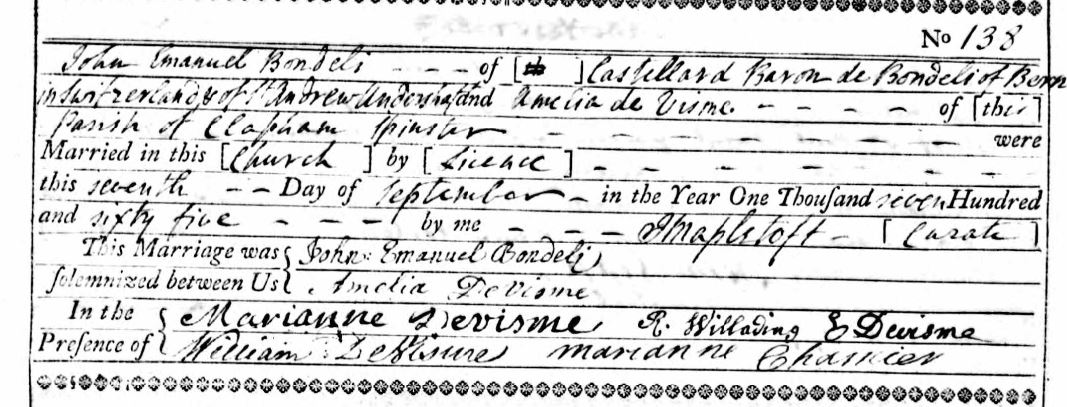 No 138
John Emanuel Bondeli - - - of [th ] Castellard Baron de Bondeli of Bern
in Switzerland & of St Andrew Undershaft and Amelia de Visme - - - - of [this]
Parish of Clapham Spinster - - - - - - - were
Married in this [Church ] by [Licence ] - - - - - - -
this seventh - - Day of September - in the Year One Thouſand seven Hundred
and sixty five - - - - by me - - - - JMaplstoft - [Curate ]
This Marriage was { John Emanuel Bondeli
ſolemnized between Us { Amelia DeVisme
In the { Marianne Devisme, R. Willading E Devisme
Preſence of { William DeVisme Marianne Chamier